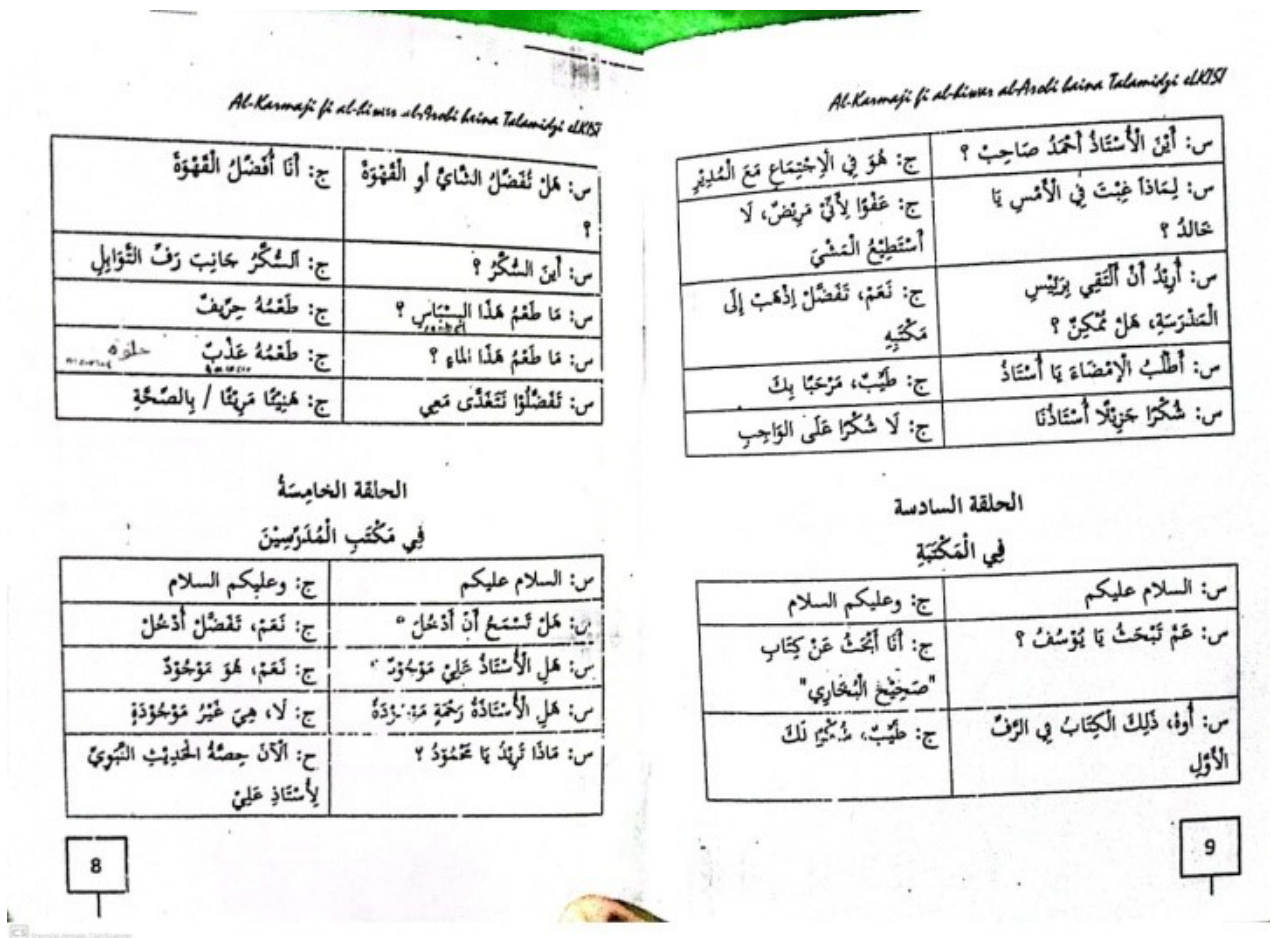 Al-Karmaji fi al-hiwar al-Arobi baina Talamidzi elKISI
س: هَلْ تُفَضِّلُ الشَّايَ أو الْقَهْوَةَ
؟
ج: أَنَا أُفَضِّلُ الْقَهْوَةَ
س: أَينَ السُّكَّرُ ؟
ج: اَلسُّكَّرُ جَانِبَ رَفِّ التَّوَابِلِ
س: مَا طَعْمُ هَذَا البِسْبَاسِ ؟
ج: طَعْمُهُ حِرِّيفٌ
س: مَا طَعْمُ هَذَا الماءِ ؟
ج: طَعْمُهُ عَذْبٌ
س: تَفَضَّلُوْا نَتَغَدَّى مَعِي
ج: هَنِيْئًا مَرِيْئًا / بِالصِّحَّةِ
الحلقة الخامِسَةُ
فِي مَكْتَبِ الْمُدَرِّسِيْنَ
س: السلام عليكم
ج: وعليكم السلام
س: هَلْ تَسْمَحُ أَنْ أَدْخُلَ
ج: نَعَمْ، تَفَضَّلْ أُدْخُلْ
س: هَلِ الْأُسْتَاذُ عَلِيْ مَوْجُوْدٌ
ج: نَعَمْ، هُوَ مَوْجُوْدٌ
س: هَلِ الْأُسْتَاذَةُ رَحْمَةِ مَوْجُوْدَةٌ
ج: لَا، هِيَ غَيْرُ مَوْجُوْدَةٍ
س: مَاذَا تُرِيْدُ يَا مَحْمُوْدُ ؟
ج: اَلْآنَ حِصَّةُ الْحَدِيْثِ النَّبَوِيِّ
لِأُسْتَاذِ عَلِيْ
8
Al-Karmaji fi al-hiwar al-Arobi baina Talamidzi elKISI
س: أَيْنَ الْأُسْتَاذُ أَحْمَدُ صَاحِبْ ؟
ج: هُوَ فِي الْاِجْتِمَاعِ مَعَ الْمُدِيْرِ
س: لِمَاذاَ غِبْتَ فِي الْأَمْسِ يَا
خَالدُ ؟
ج: عَفْوًا لِأَنِّيْ مَرِيْضٌ، لَا
أَسْتَطِيْعُ الْمَشْيَ
س: أُرِيْدُ أَنْ أَلْتَقِي بِرَئِيْسِ
الْمَدْرَسَةِ، هَلْ مُمْكِنٌ ؟
ج: نَعَمْ، تَفَضَّلْ اِذْهَبْ إِلَى
مَكْتَبِهِ
س: أَطْلُبُ الْإِمْضَاءَ يَا أُسْتَاذُ
ج: طَيِّبْ، مَرْحَبًا بِكَ
س: شُكْرًا جَزِيْلًا أُسْتَاذُنَا
ج: لَا شُكْرًا عَلَى الوَاجِبِ
الحلقة السادسة
فِي الْمَكْتَبَةِ
س: السلام عليكم
ج: وعليكم السلام
س: عَمَّ تَبْحَثُ يَا يُوْسُفُ ؟
ج: أَنَا أَبْحَثُ عَنْ كِتَابِ
"صَحِيْحِ الْبُخَارِي"
س: أَوهْ، ذَلِكَ الْكِتَابُ فِي الرَّفِّ
الْأَوَّلِ
ج: طَيِّبْ، شُكْرًا لَكَ
9